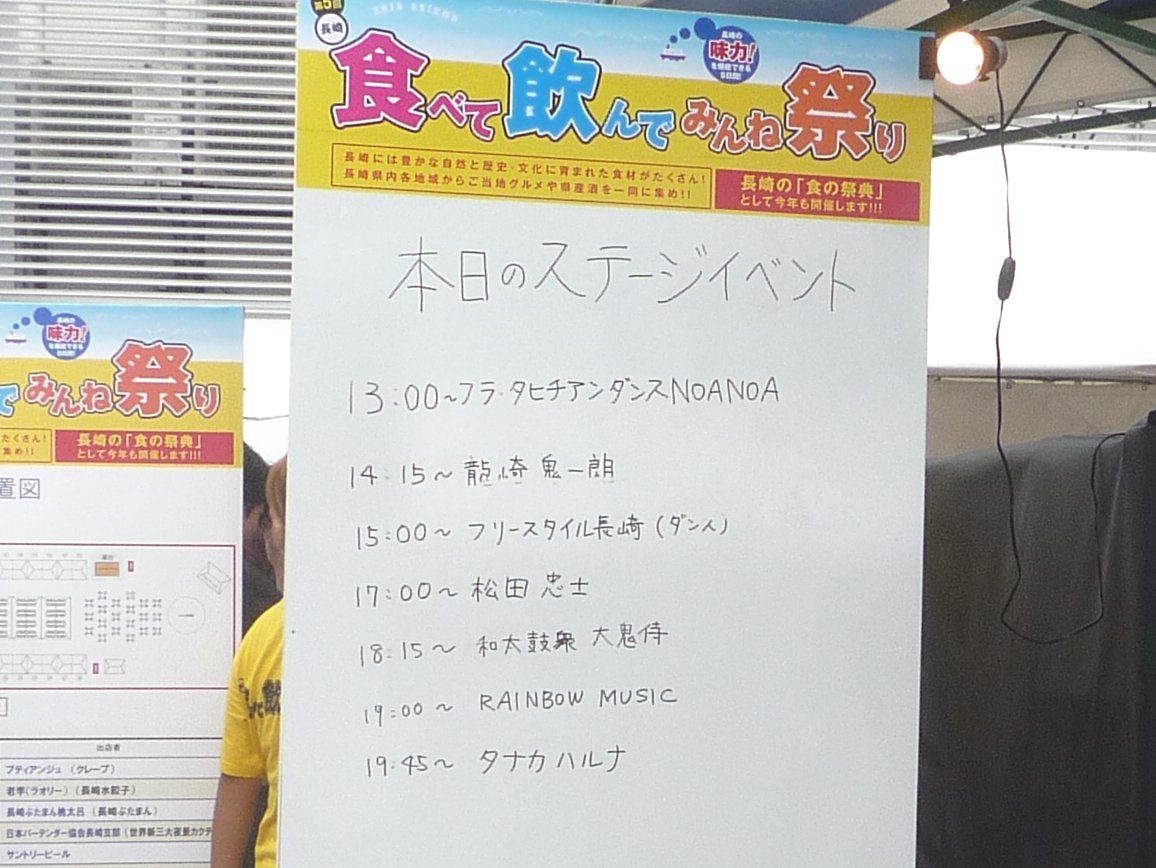 第5回
長崎
2016 autumn
長崎の
味力!
を堪能できる
5日間!
食べて飲んでみんね祭り
長崎には豊かな自然と歴史・文化に育まれた食材がたくさん!
長崎県内各地域からご当地グルメや県産酒を一同に集め!!
長崎の「食の祭典」
として今年も開催します!!!
本日のステージイベント
13:00~フラ・タヒチアンダンスNOANOA
14:15~龍崎 鬼一朗
15:00~フリースタイル長崎(ダンス)
17:00~松田 忠士
18:15~和太鼓衆 大鬼侍
19:00~ RAINBOW MUSIC
19:45~ タナカハルナ
長崎の
味力!
を堪能できる
5日間!
でみんね祭り
たくさん!
集め!!
長崎の「食の祭典」
として今年も開催します!!!
置図
出店者
プティアンジュ (クレープ)
老李(ラオリー) (長崎水餃子)
長崎ぶたまん桃太呂 (長崎ぶたまん)
日本バーテンダー協会長崎支部 (世界新三大夜景カクテ
サントリービール
て飲